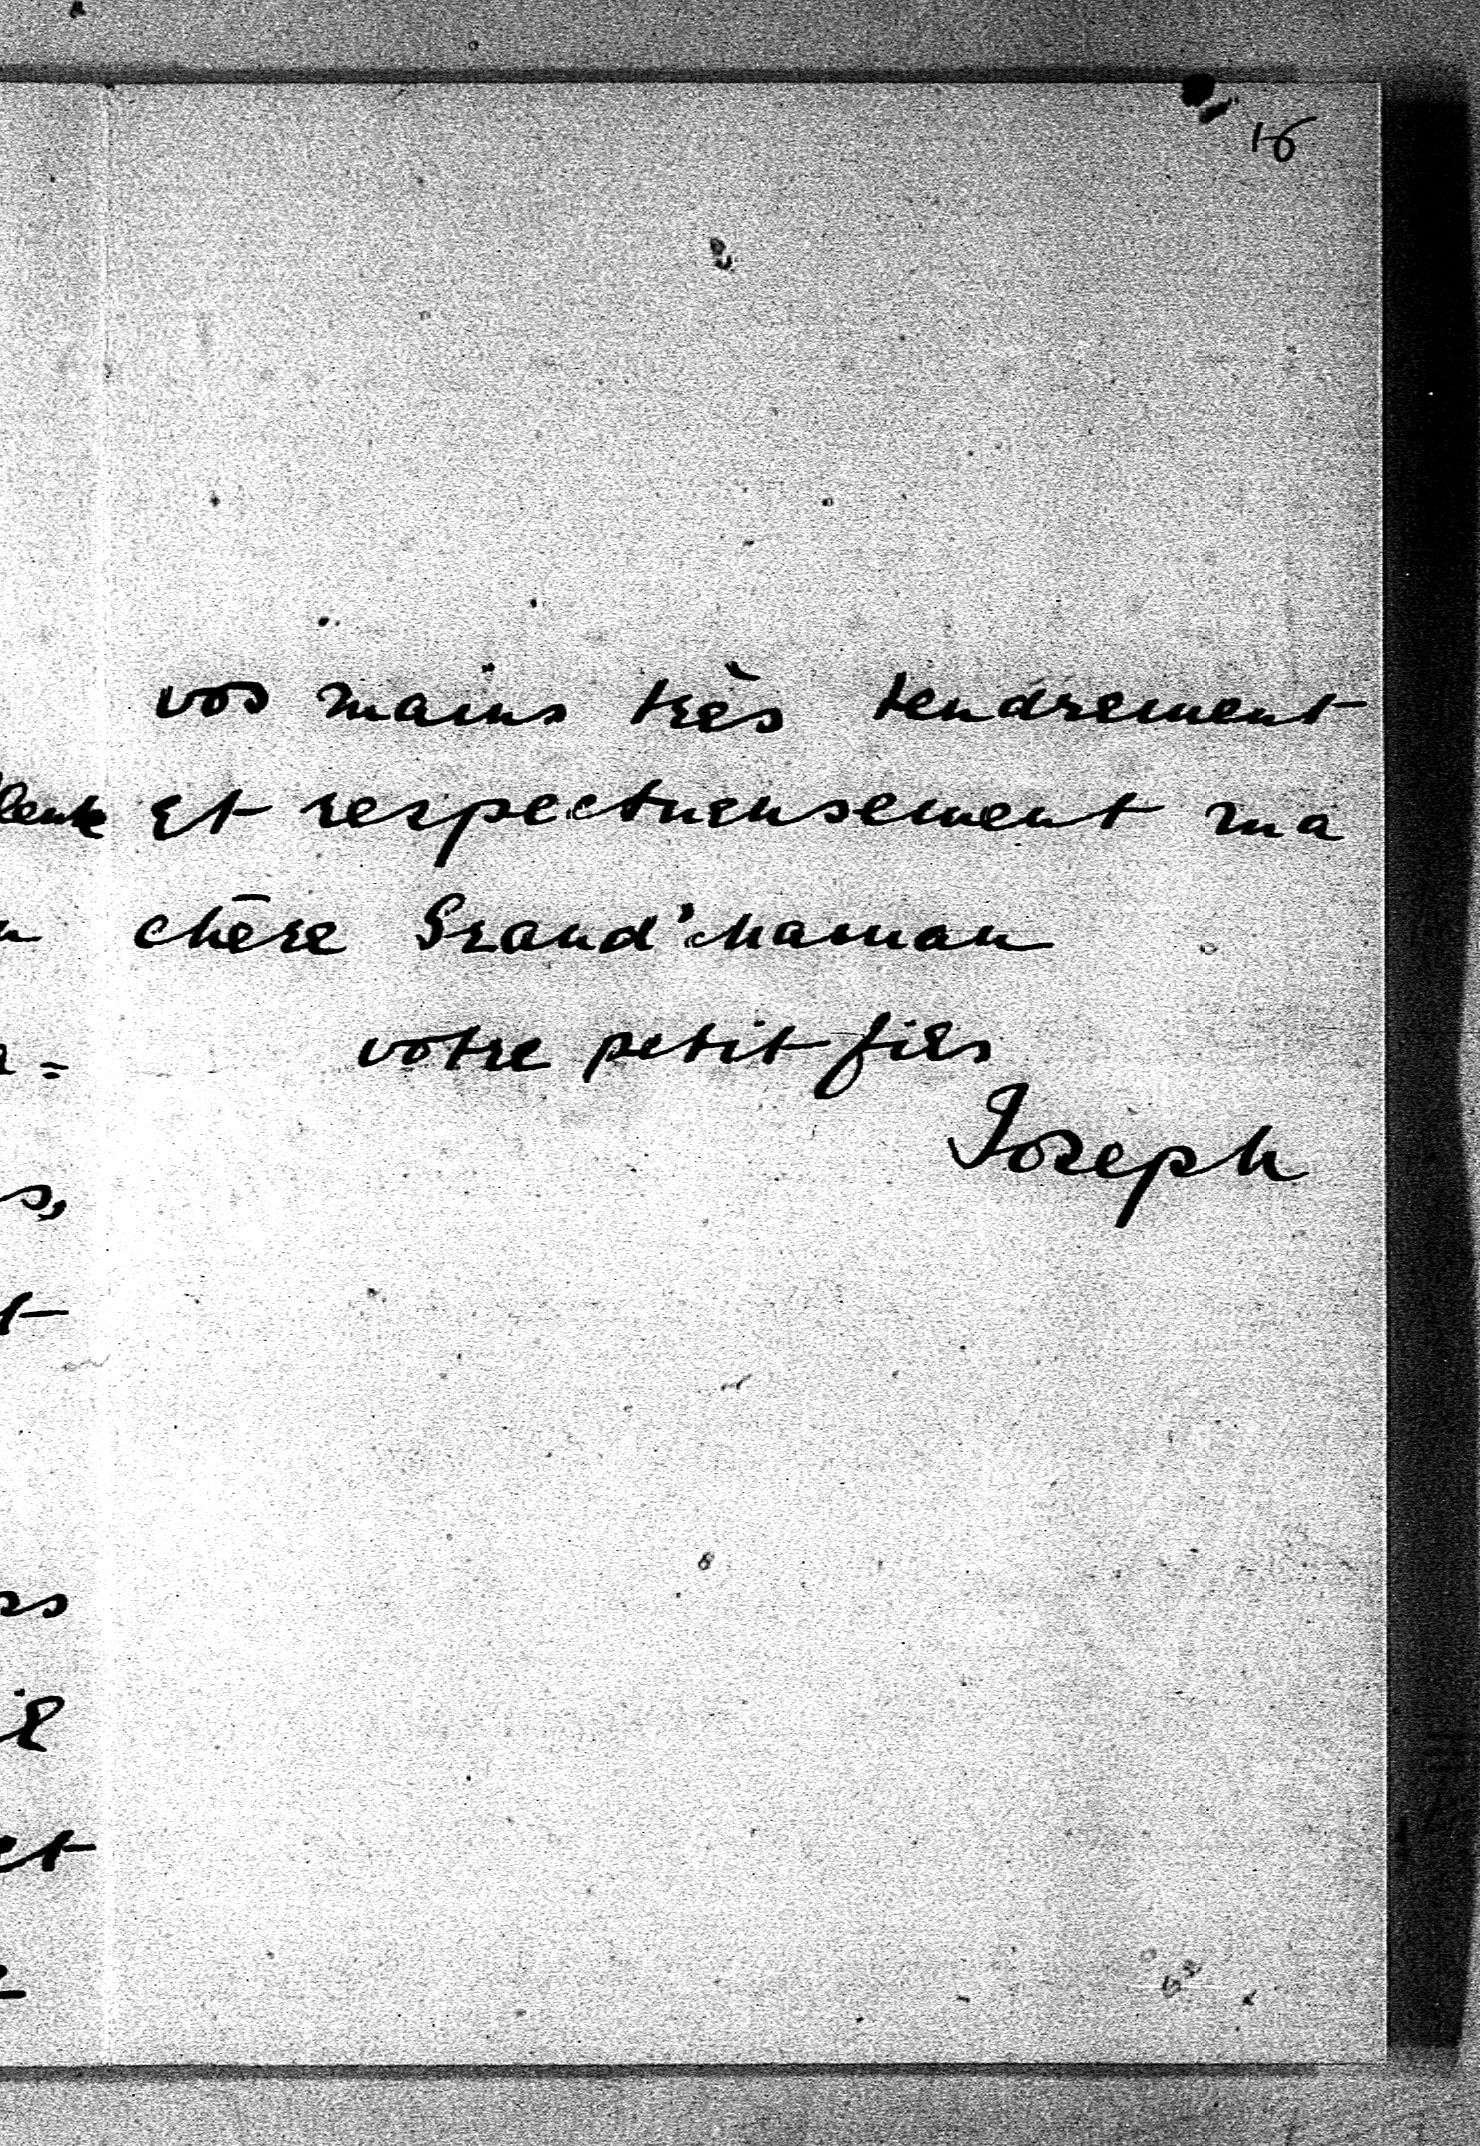 16
vos mains très tendrement
et respectueusement ma
chère Grand'Maman
votre petit fils
Joseph